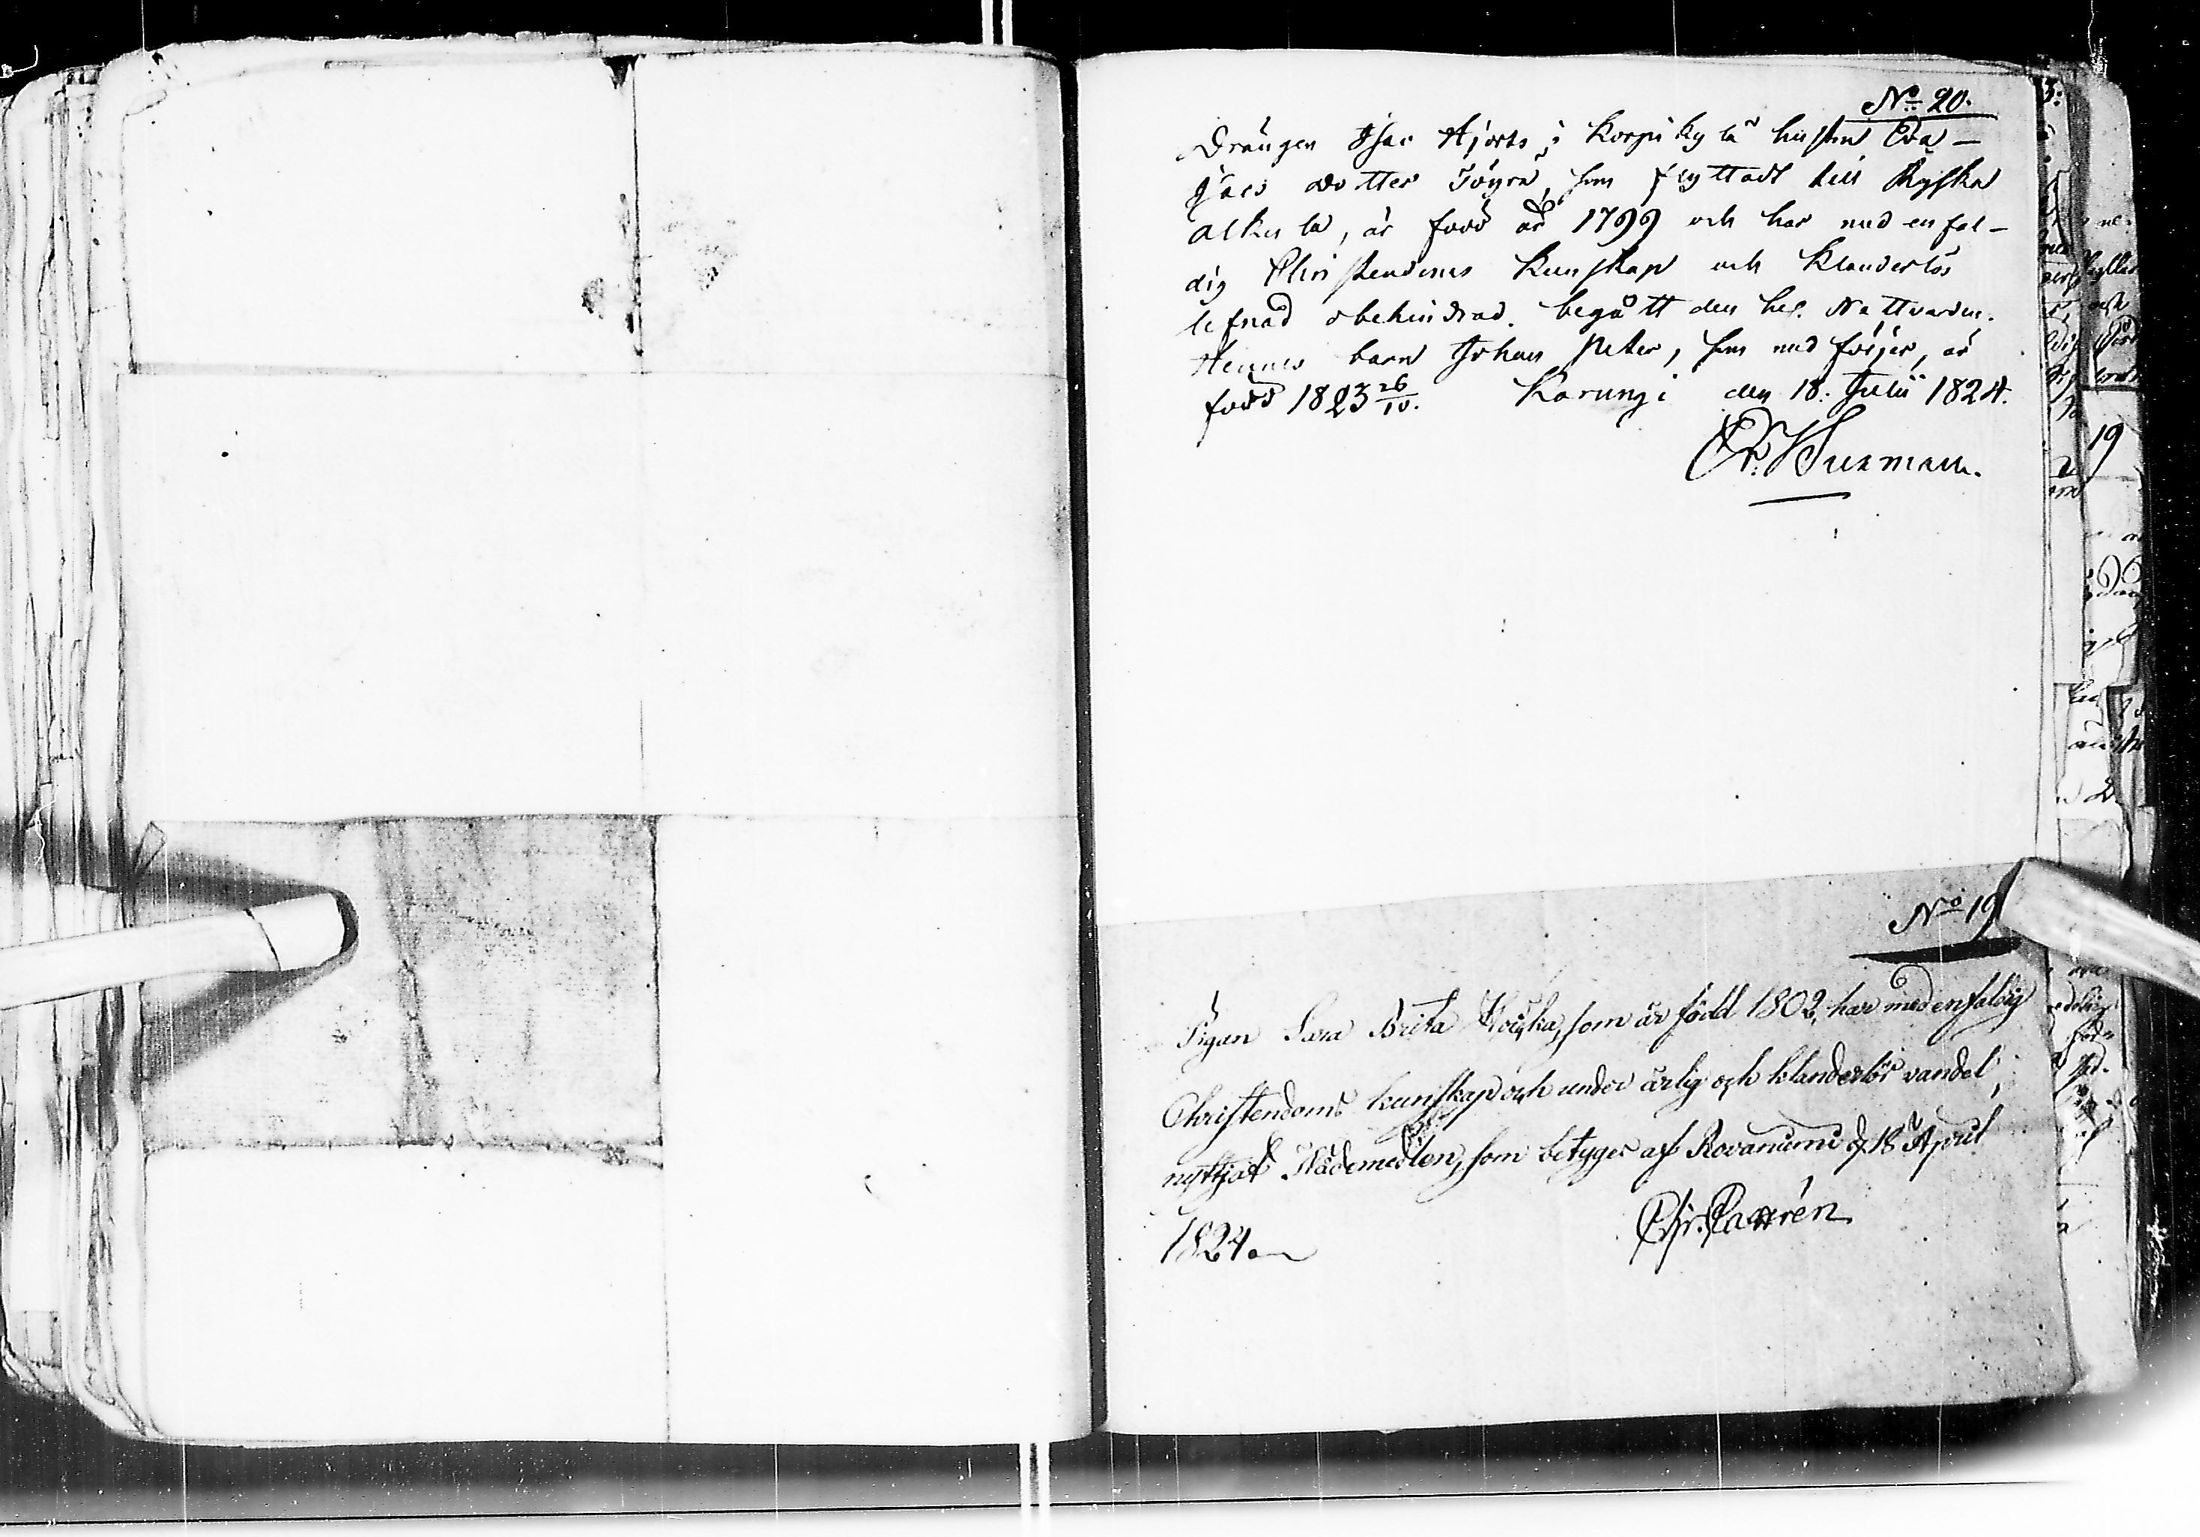 No 20.
Drängen Isac Hjorts i Korpikylä hustru Eva
Jacs dotter Töyrä, som flyttadt till Ryska
Alkula, är född år 1799 och har med enfal-
dig Christendoms kunskap och klanderlös
lefnad obehindrad begått den hel. Nattvarden.
Hennes barn Johan Peter, som med följer, är
född 1823 26/10. Karungi den 18. Julii 1824.
No 19
Pigan Sara Brita Koiska, som är född 1802, har med enfaldig
Christendoms kunskap och under ärlig och klanderlös vandel
nyttjat Nådemedlen, som betyges af Rovaniemi d. 18 April
1824.